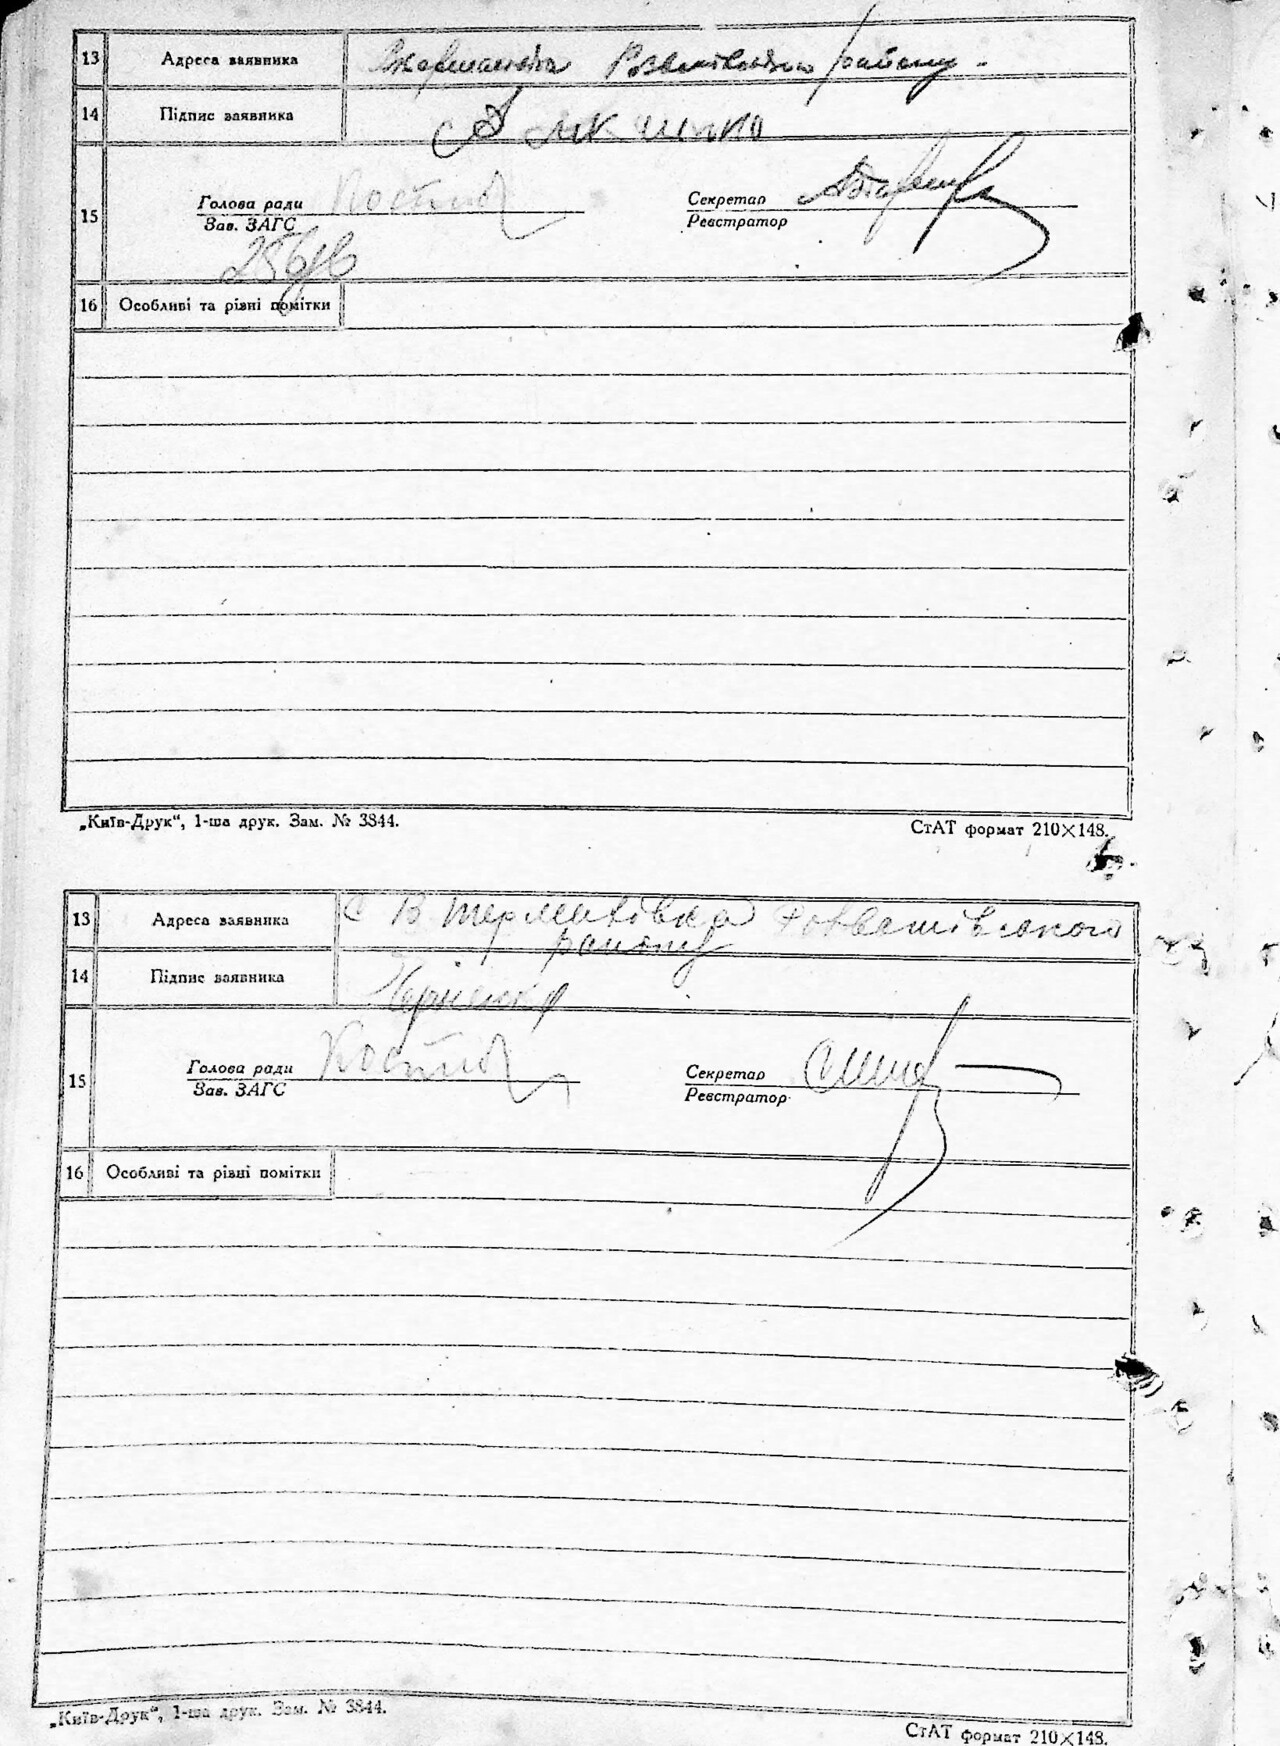 13 Адреса заявника району.
14 Підпис заявника
15 Голова ради Секретар
Зав. ЗАГС Реєстратор
16 Особливі та різні помітки
„Київ-Друк“, 1-ша друк. Зам. № 3844. СтАТ формат 210×148.
13 Адреса заявника С В Термахівка Розважівського
району
14 Підпис заявника
15 Голова ради Секретар
Зав. ЗАГС Реєстратор
16 Особливі та різні помітки
„Київ-Друк“, 1-ша друк. Зам. № 3844.
СтАТ формат 210×148.